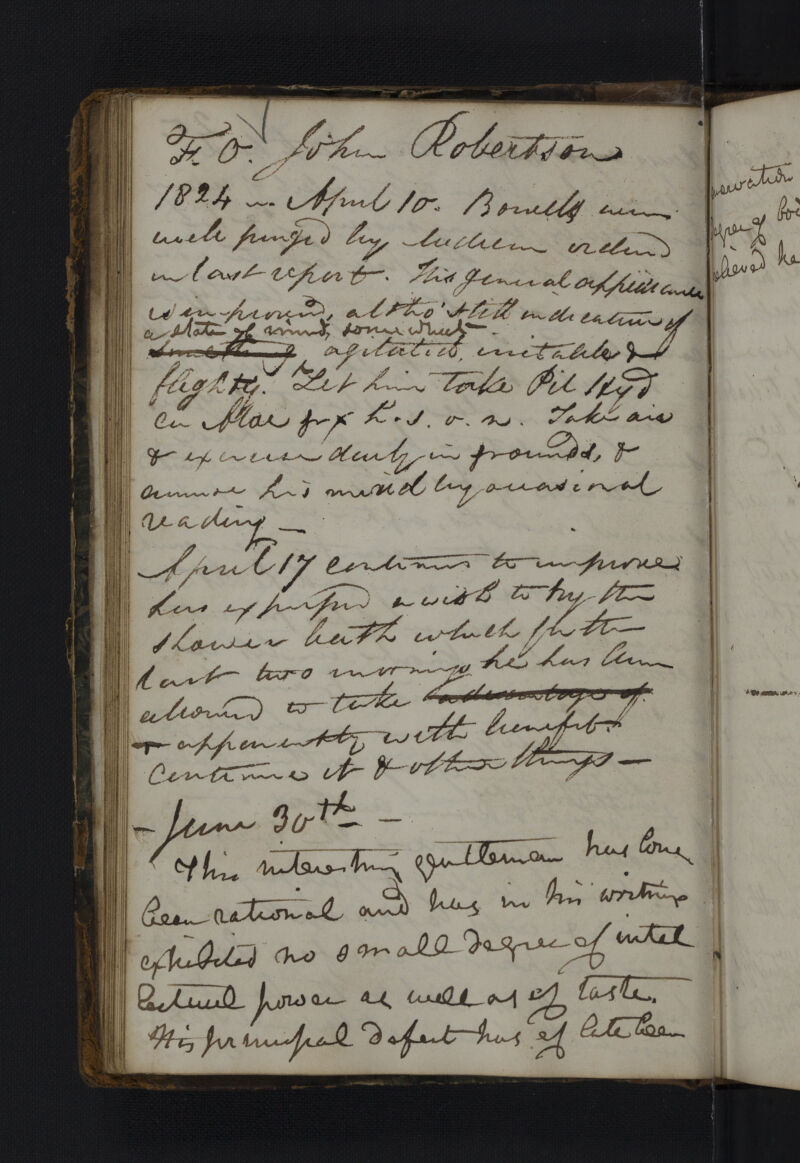 F. O. John Robertson
1824 April 10. Bowells were
well purged by medicine ordered
in last report. His general appearance
is improved, altho' still indicative of
a state of mind, somewhat
something agitated, irritable &
flighty. Let him take Pil Hyd
cu Aloe gr x h. s. o. n. Take air
& exercise daily in grounds, &
amuse his mind by occasional
reading —
April 17 continues to improve
has expressed a wish to try the
shower bath which for the
last two mornings he has been
allowed to take advantage of
& apparently with benefit.
Continue it & other things —
— June 30th —
This interesting gentleman has long
been rational and has in his writings
exhibited no small degree of intel
lectual power as well as of taste.
His principal defect has of late been
servation
degree of
elieved he